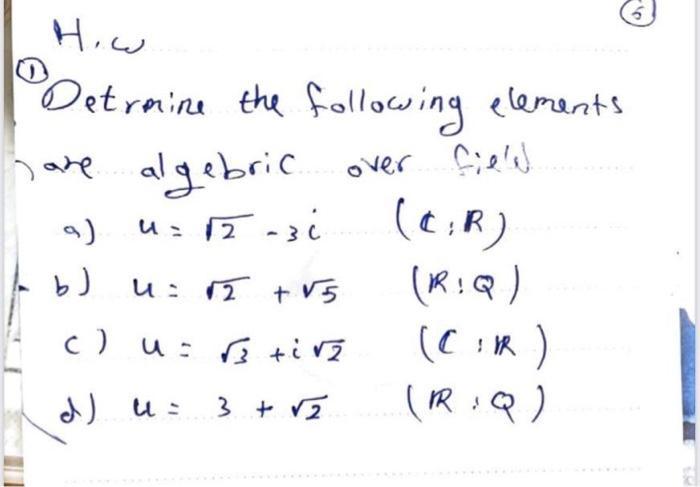 5
H.w
① Detrmine the following elements
are algebric over field
a) u = √2 - 3i (C : R)
b) u = √2 + √5 (R : Q)
c) u = √3 + i√2 (C : R)
d) u = 3 + √2 (R : Q)